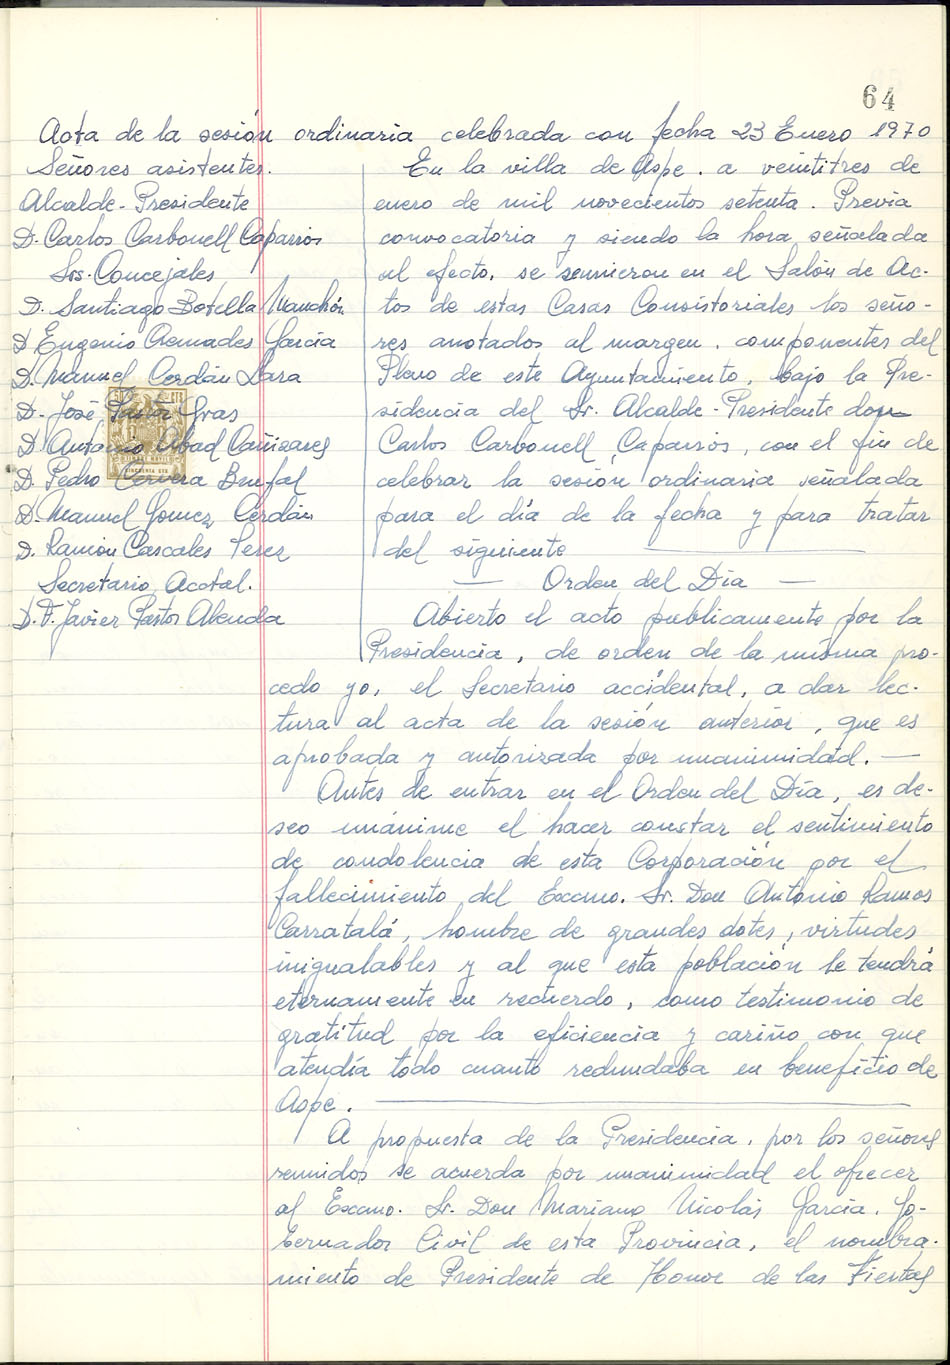 64
Acta de la sesión ordinaria celebrada con fecha 23 Enero 1970
Señores asistentes.
Alcalde-Presidente
D. Carlos Carbonell Caparros
Srs. Concejales
D. Santiago Botella Manchón
D. Eugenio Cremades García
D. Manuel Cerdán Lara
D. José Pastor Gras
D. Antonio Abad Cañizares
D. Pedro Cervera Brufal
D. Manuel Gomez Cerdán
D. Ramón Cascales Perez
Secretario Acctal.
D. F. Javier Pastor Alenda
En la villa de Aspe, a veintitres de
enero de mil novecientos setenta. Previa
convocatoria y siendo la hora señalada
al efecto, se reunieron en el Salón de Ac-
tos de estas Casas Consistoriales los seño-
res anotados al margen, componentes del
Pleno de este Ayuntamiento, bajo la Pre-
sidencia del Sr. Alcalde-Presidente don
Carlos Carbonell Caparrós, con el fin de
celebrar la sesión ordinaria señalada
para el día de la fecha y para tratar
del siguiente
— Orden del Día —
Abierto el acto publicamente por la
Presidencia, de orden de la misma pro-
cedo yo, el Secretario accidental, a dar lec-
tura al acta de la sesión anterior, que es
aprobada y autorizada por unanimidad. —
Antes de entrar en el Orden del Día, es de-
seo unánime el hacer constar el sentimiento
de condolencia de esta Corporación por el
fallecimiento del Excmo. Sr. Don Antonio Ramos
Carratalá, hombre de grandes dotes, virtudes
inigualables y al que esta población le tendrá
eternamente en recuerdo, como testimonio de
gratitud por la eficiencia y cariño con que
atendía todo cuanto redundaba en beneficio de
Aspe.
A propuesta de la Presidencia, por los señores
reunidos se acuerda por unanimidad el ofrecer
al Excmo. Sr. Don Mariano Nicolás García, Go-
bernador Civil de esta Provincia, el nombra-
miento de Presidente de Honor de las Fiestas